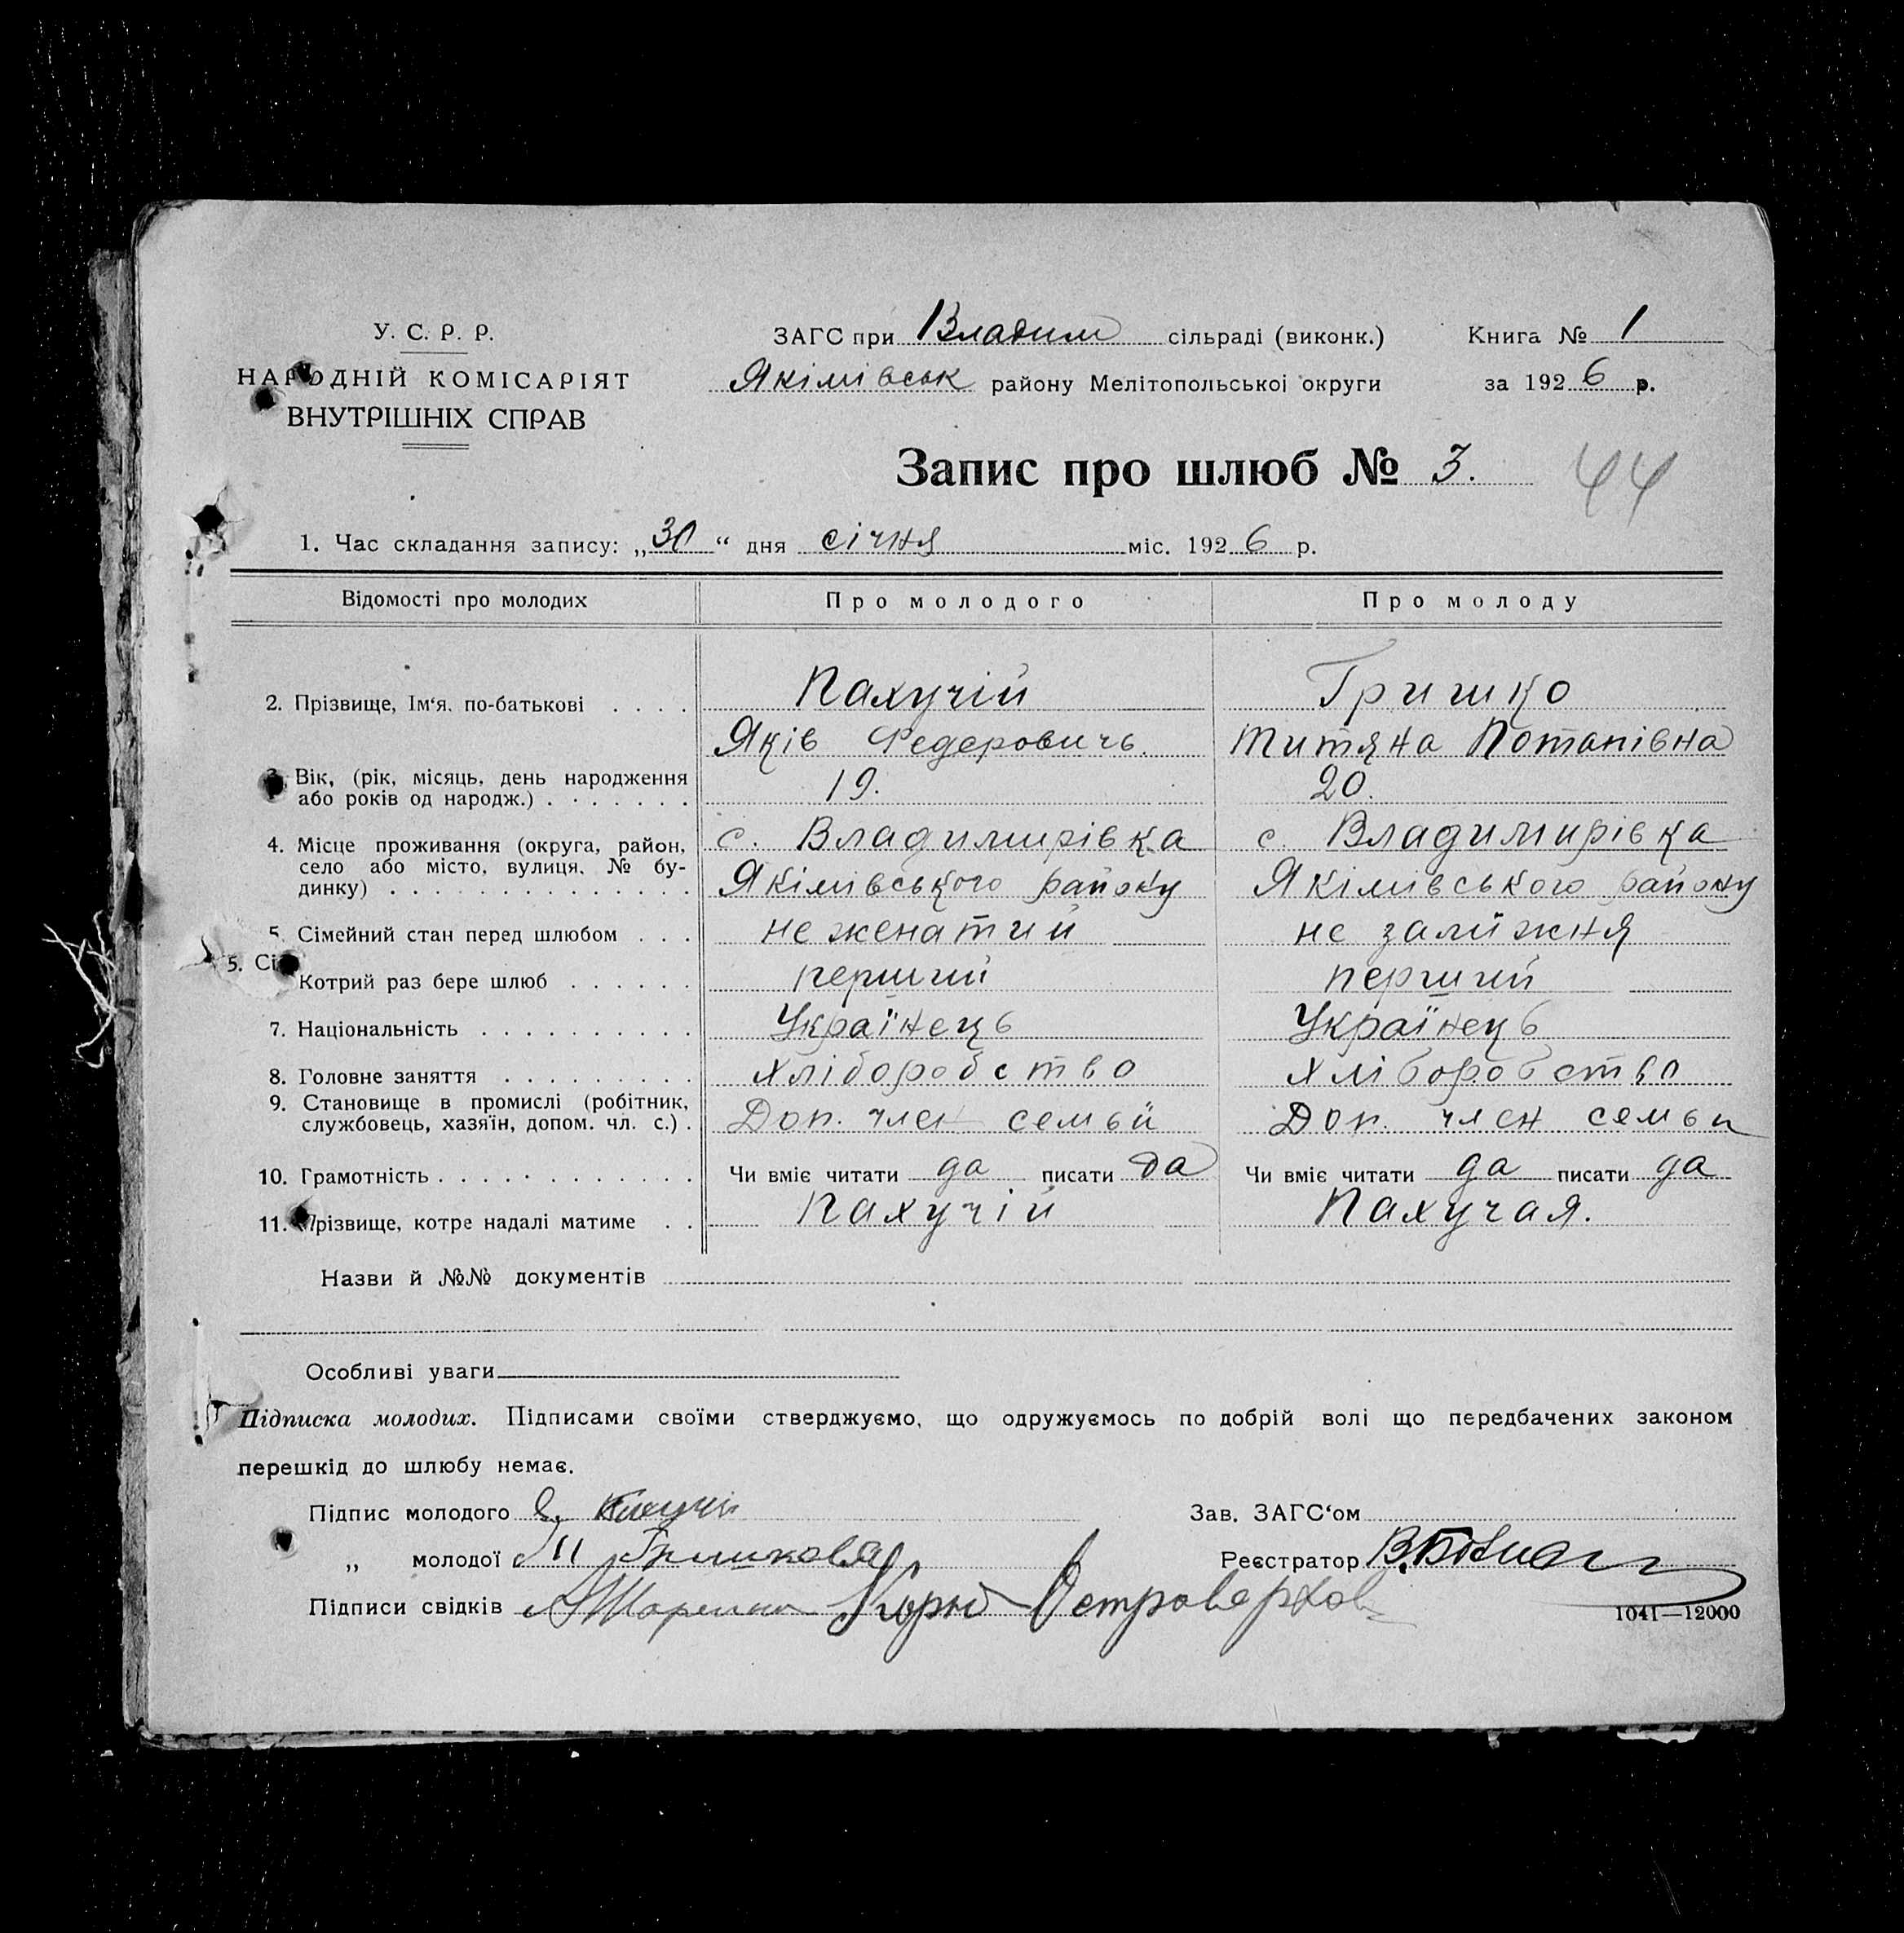 У. С. Р. Р.
НАРОДНІЙ КОМІСАРІЯТ
ВНУТРІШНІХ СПРАВ
ЗАГС при Владим сільраді (виконк.)
Якімівськ району Мелітопольської округи
Книга № 1
за 1926 р.
Запис про шлюб № 3.
44
1. Час складання запису: „30“ дня січня міс. 1926 р.
Відомості про молодих Про молодого Про молоду
2. Прізвище, Ім'я, по-батькові . . . . Пахучій Гришко
Яків Федеровичь. Титяна Потапівна
3. Вік, (рік, місяць, день народження
або років од народж.) . . . . . . . 19. 20.
4. Місце проживання (округа, район, с. Владимирівка с. Владимирівка
село або місто, вулиця, № бу-
динку) . . . . . . . . . . . . . . Якімівського району Якімівського району
5. Сімейний стан перед шлюбом . . . не женатий не заміжня
5. Сі
Котрий раз бере шлюб . . . . . . перший перший
7. Національність . . . . . . . . . . Українець Українець
8. Головне заняття . . . . . . . . . Хліборобство Хліборобство
9. Становище в промислі (робітник,
службовець, хазяїн, допом. чл. с.) . Доп. член семьи Доп. член семьи
10. Грамотність . . . . . . . . . . . . Чи вміє читати да писати да Чи вміє читати да писати да
11. Прізвище, котре надалі матиме . . Пахучій Пахучая.
Назви й №№ документів
Особливі уваги
Підписка молодих. Підписами своїми стверджуємо, що одружуємось по добрій волі що передбачених законом
перешкід до шлюбу немає.
Підпис молодого Я. Пахучій Зав. ЗАГС'ом
„ молодої Гришковя Реєстратор
Підписи свідків Островерхов
1041—12000